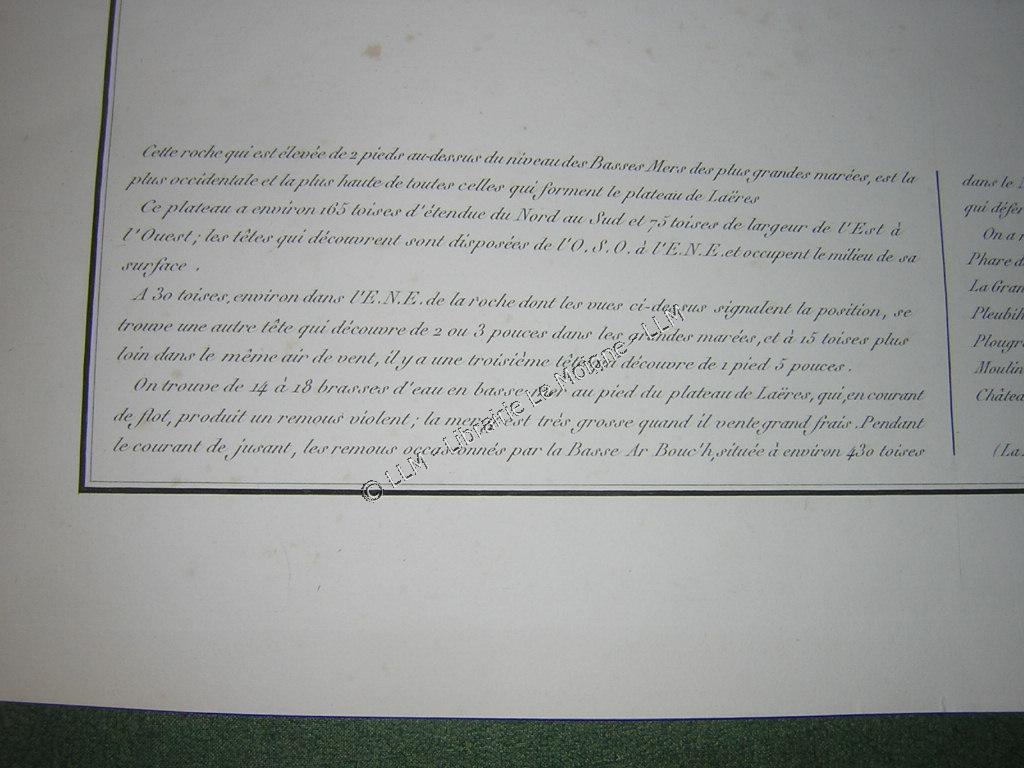 Cette roche qui est élevée de 2 pieds au-dessus du niveau des Basses Mers des plus grandes marées, est la
plus occidentale et la plus haute de toutes celles qui forment le plateau de Laëres
Ce plateau a environ 165 toises d'étendue du Nord au Sud et 75 toises de largeur de l'Est à
l'Ouest; les têtes qui découvrent sont disposées de l'O.S.O. à l'E.N.E. et occupent le milieu de sa
surface.
A 30 toises, environ dans l'E.N.E. de la roche dont les vues ci-dessus signalent la position, se
trouve une autre tête qui découvre de 2 ou 3 pouces dans les grandes marées, et à 15 toises plus
loin dans le même air de vent, il y a une troisième tête qui découvre de 1 pied 5 pouces.
On trouve de 14 à 18 brasses d'eau en basse mer au pied du plateau de Laëres, qui, en courant
de flot, produit un remous violent; la mer y est très grosse quand il vente grand frais. Pendant
le courant de jusant, les remous occasionnés par la Basse Ar Bouc'h, située à environ 430 toises
dans le
qui
On a
Phare
La
Moulin
(La
© LLM - Librairie Le Moigne - LLM